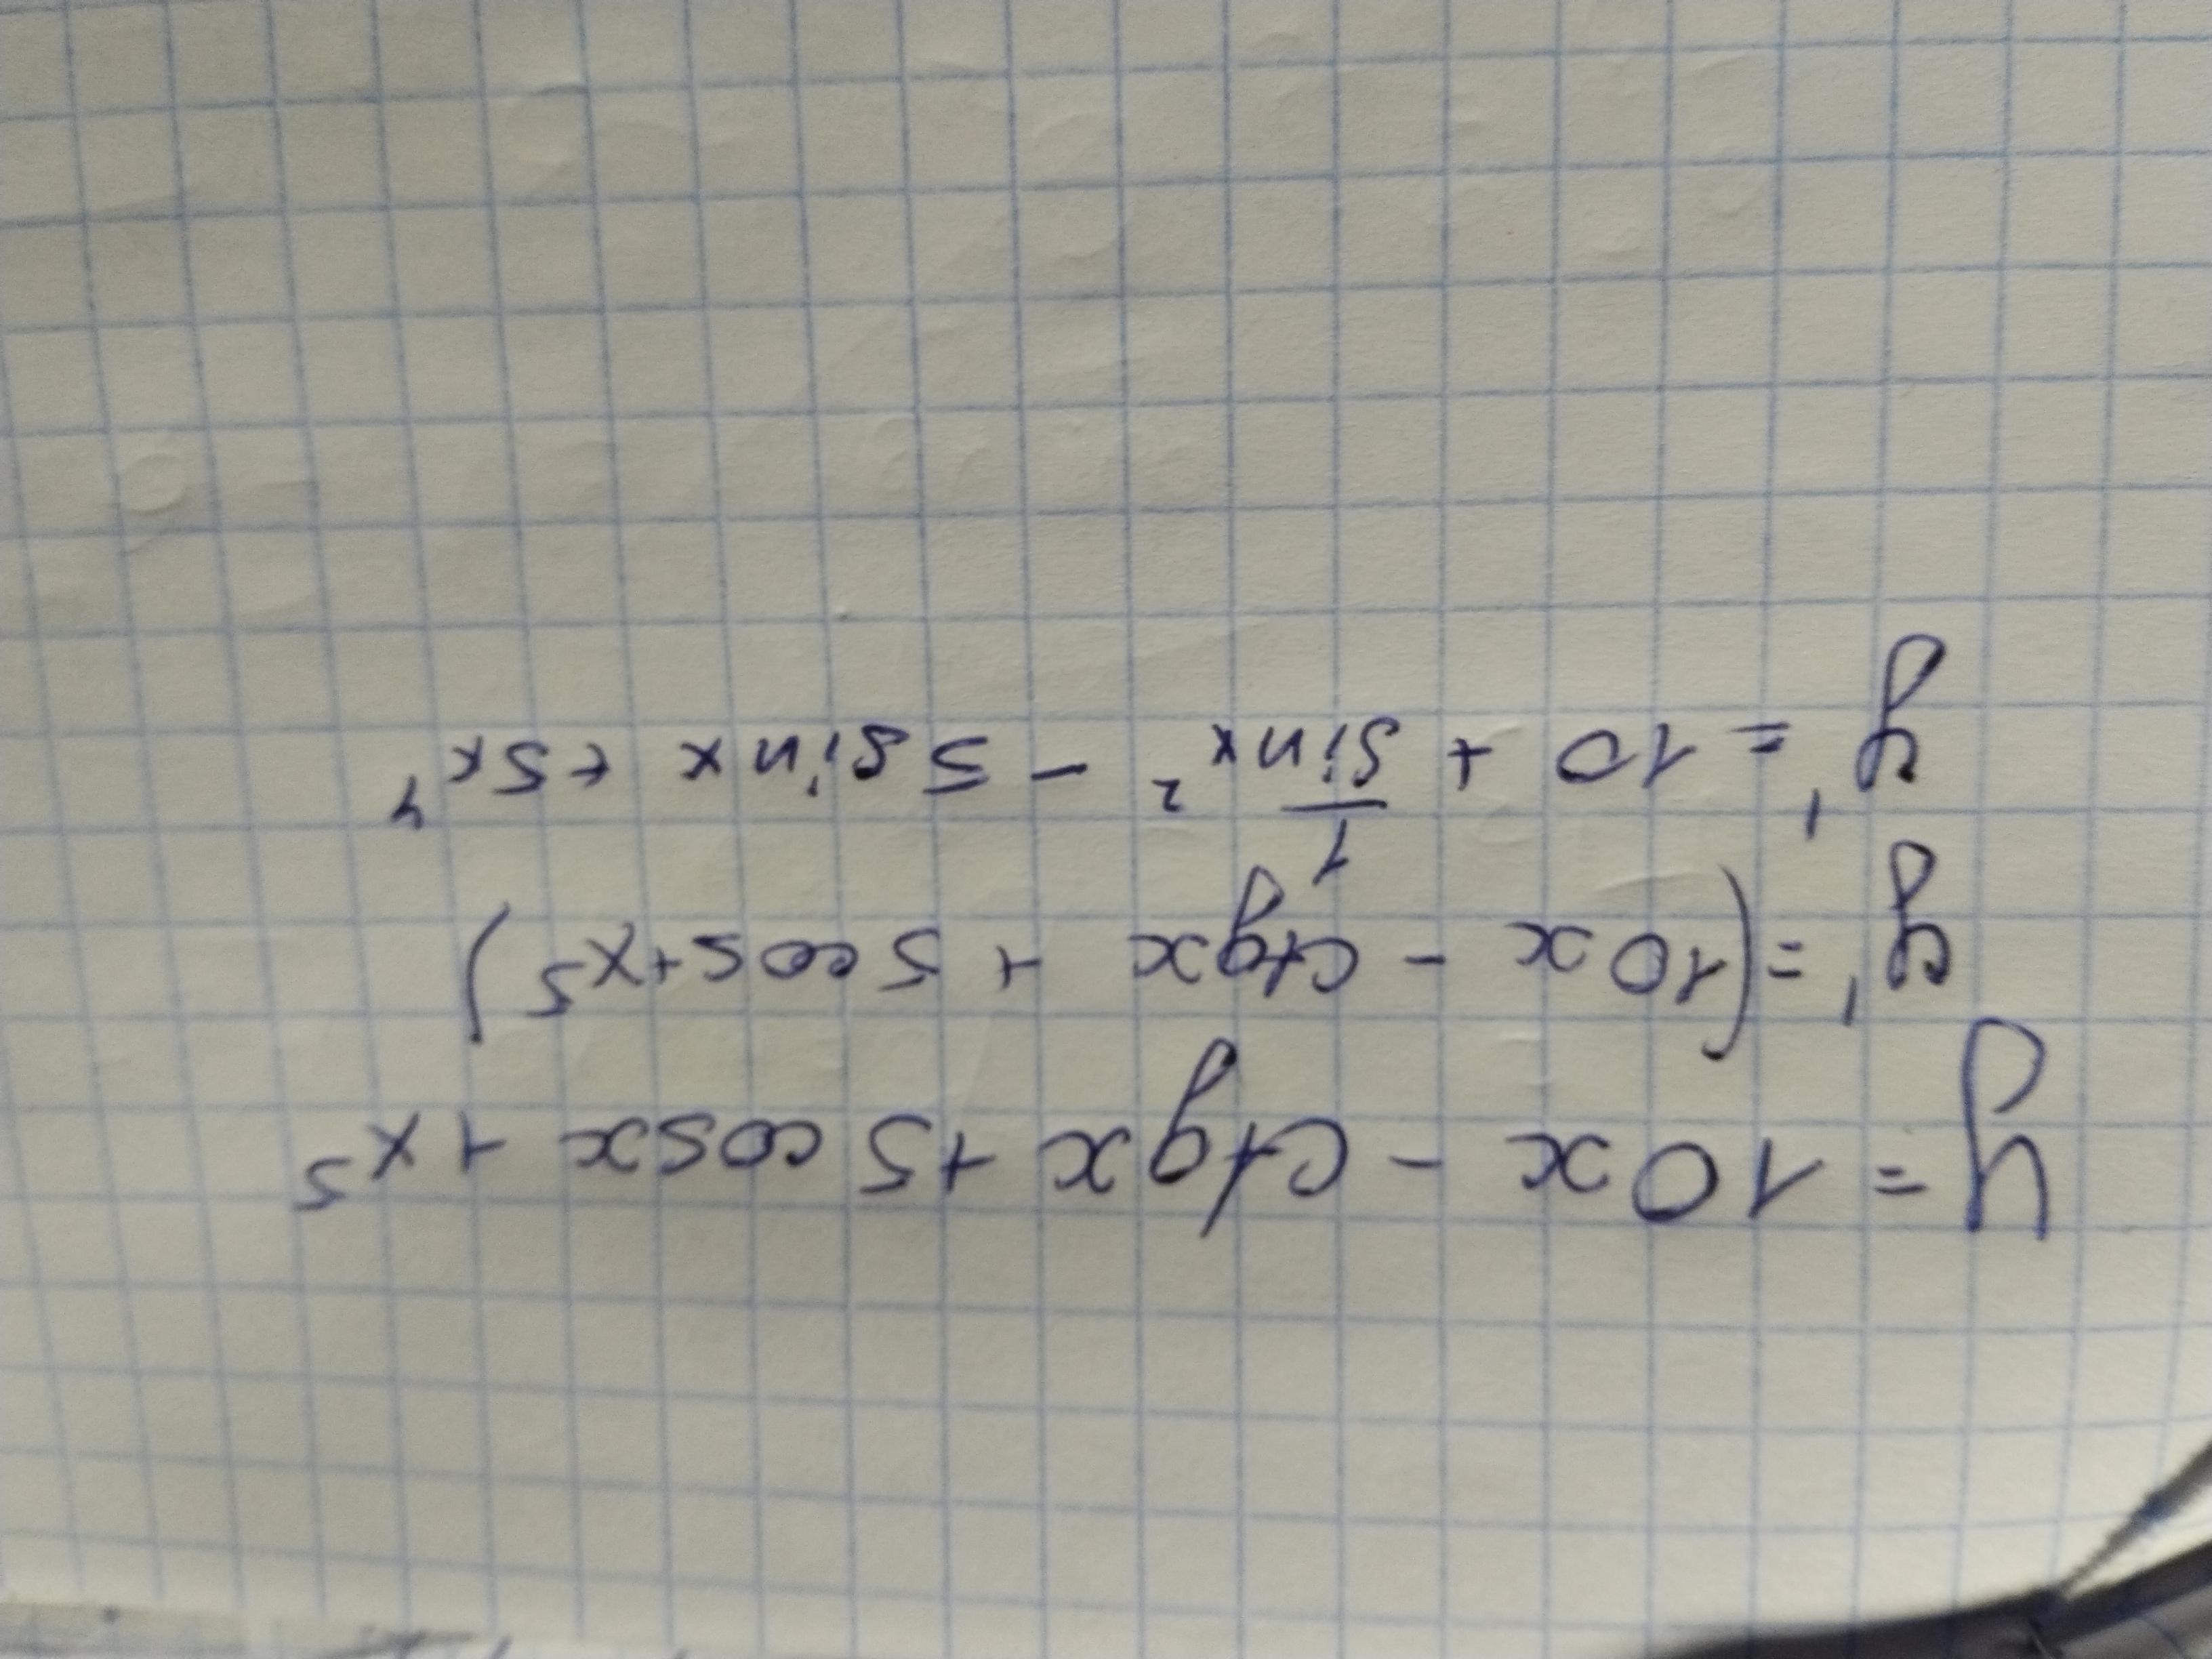 y = 10x - ctgx + 5 cosx + x⁵
y' = (10x - ctgx + 5cos + x⁵)
y' = 10 + 1/sinx² - 5 sin x + 5x⁴